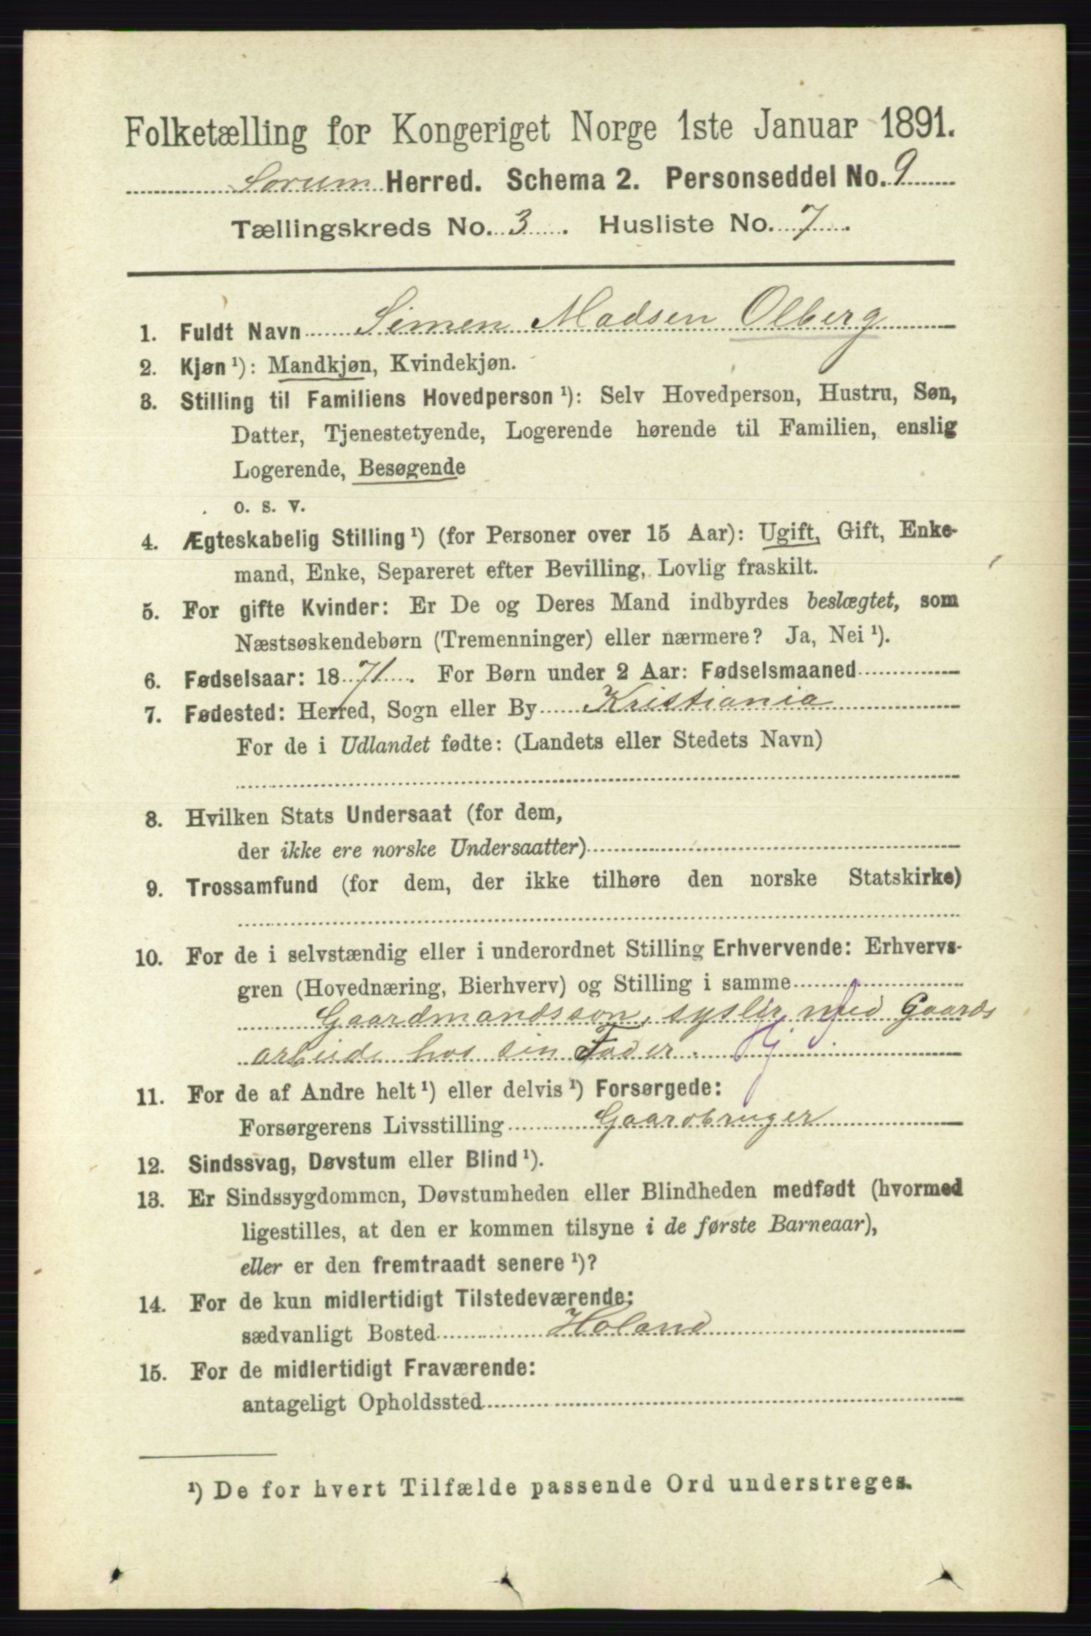 Folketælling for Kongeriget Norge 1ste Januar 1891.
Sørum Herred. Schema 2. Personseddel No. 9
Tællingskreds No. 3. Husliste No. 7.
1. Fuldt Navn Simen Madsen Olberg
2. Kjøn ¹): Mandkjøn, Kvindekjøn.
3. Stilling til Familiens Hovedperson ¹): Selv Hovedperson, Hustru, Søn,
Datter, Tjenestetyende, Logerende hørende til Familien, enslig
Logerende, Besøgende
o. s. v.
4. Ægteskabelig Stilling ¹) (for Personer over 15 Aar): Ugift, Gift, Enke-
mand, Enke, Separeret efter Bevilling, Lovlig fraskilt.
5. For gifte Kvinder: Er De og Deres Mand indbyrdes beslægtet, som
Næstsøskendebørn (Tremenninger) eller nærmere? Ja, Nei ¹).
6. Fødselsaar: 1871. For Børn under 2 Aar: Fødselsmaaned
7. Fødested: Herred, Sogn eller By Kristiania
For de i Udlandet fødte: (Landets eller Stedets Navn)
8. Hvilken Stats Undersaat (for dem,
der ikke ere norske Undersaatter)
9. Trossamfund (for dem, der ikke tilhøre den norske Statskirke)
10. For de i selvstændig eller i underordnet Stilling Erhvervende: Erhvervs-
gren (Hovednæring, Bierhverv) og Stilling i samme
Gaardmandssøn, sysler med Gaards
arbeide hos sin Fader. Hj
11. For de af Andre helt ¹) eller delvis ¹) Forsørgede:
Forsørgerens Livsstilling Gaardbruger
12. Sindssvag, Døvstum eller Blind ¹).
13. Er Sindssygdommen, Døvstumheden eller Blindheden medfødt (hvormed
ligestilles, at den er kommen tilsyne i de første Barneaar),
eller er den fremtraadt senere ¹)?
14. For de kun midlertidigt Tilstedeværende:
sædvanligt Bosted Høland
15. For de midlertidigt Fraværende:
antageligt Opholdssted
¹) De for hvert Tilfælde passende Ord understreges.